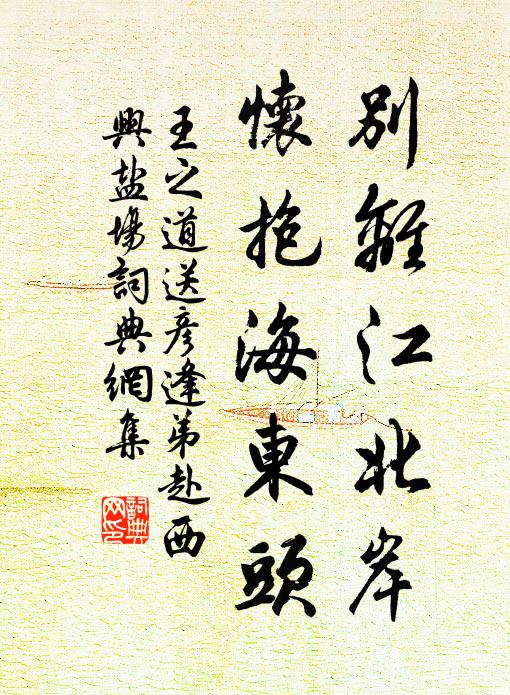 別離江北岸
懷抱海東頭
王之道送彦逢弟赴西
興盐場詞典網集
詞典网印